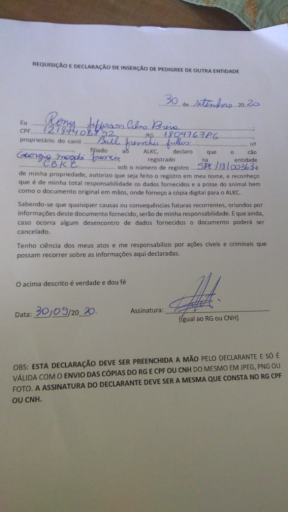 REQUISIÇÃO E DECLARAÇÃO DE INSERÇÃO DE PEDIGREE DE OUTRA ENTIDADE
30 de setembro 20 20
Eu Rony Jefferson
CPF RG
proprietário do canil Bull frenchie nº
filiado ao ALKC, declaro que o cão
registrado na entidade
CBKC sob o número de registro
de minha propriedade, autorizo que seja feito o registro em meu nome, e reconheço
que é de minha total responsabilidade os dados fornecidos e a posse do animal bem
como o documento original em mãos, onde forneço a cópia digital para o ALKC.
Sabendo-se que quaisquer causas ou consequências futuras recorrentes, oriundos por
informações deste documento fornecido, serão de minha responsabilidade. E que ainda,
caso ocorra algum desencontro de dados fornecidos o documento poderá ser
cancelado.
Tenho ciência dos meus atos e me responsabilizo por ações cíveis e criminais que
possam recorrer sobre as informações aqui declaradas.
O acima descrito é verdade e dou fé
Data: 30/09/20 20. Assinatura:
(Igual ao RG ou CNH)
OBS: ESTA DECLARAÇÃO DEVE SER PREENCHIDA A MÃO PELO DECLARANTE E SÓ É
VÁLIDA COM O ENVIO DAS CÓPIAS DO RG E CPF OU CNH DO MESMO EM JPEG, PNG OU
FOTO. A ASSINATURA DO DECLARANTE DEVE SER A MESMA QUE CONSTA NO RG CPF
OU CNH.